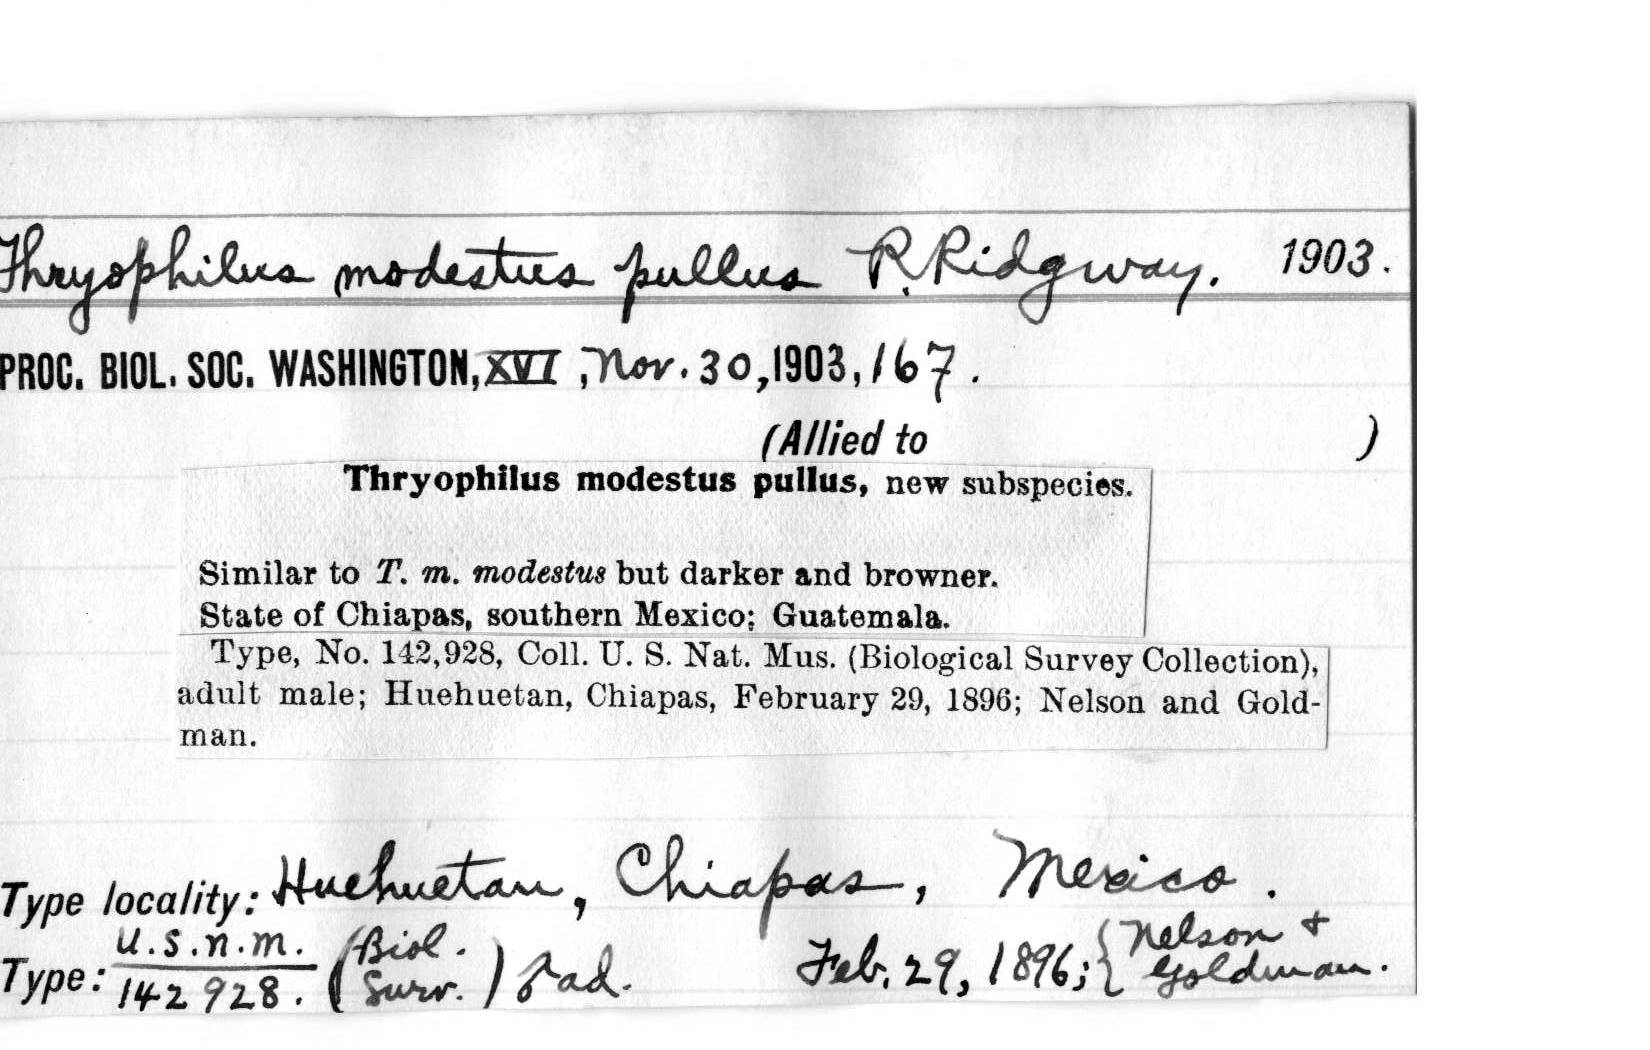 Thryophilus modestus pullus R. Ridgway. 1903.
PROC. BIOL. SOC. WASHINGTON, XVI, Nov. 30, 1903, 167.
(Allied to )
Thryophilus modestus pullus, new subspecies.
Similar to T. m. modestus but darker and browner.
State of Chiapas, southern Mexico; Guatemala.
Type, No. 142,928, Coll. U. S. Nat. Mus. (Biological Survey Collection),
adult male; Huehuetan, Chiapas, February 29, 1896; Nelson and Gold-
man.
Type locality: Huehuetan, Chiapas, Mexico.
Type: U.S.N.M. 142928. (Biol. Surv.) ♂ad. Feb. 29, 1896; {Nelson + Goldman.